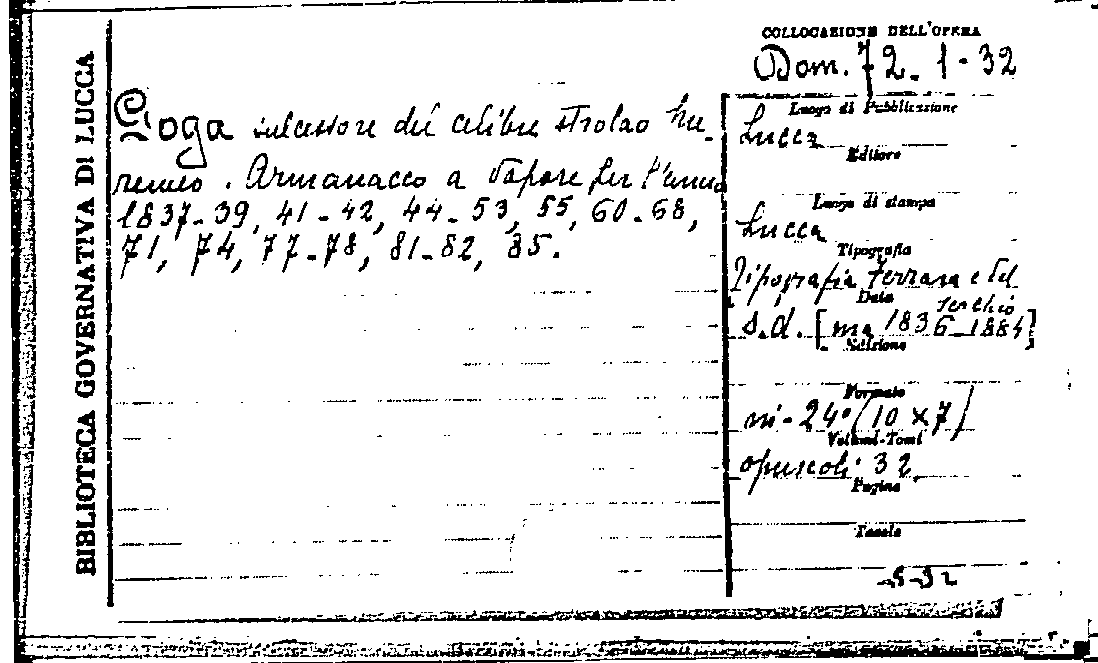 BIBLIOTECA GOVERNATIVA DI LUCCA
COLLOCAZIONE DELL'OPERA
Dom. 72. 1-32
Goga successore del celibre strolao
Armanacco a Vapore per l'anno
1837-39, 41-42, 44-53, 55, 60-68,
71, 74, 77-78, 81-82, 85.
Luogo di Pubblicazione
Lucca
Editore
Luogo di stampa
Lucca
Tipografia
Tipografia Ferrara e del
Serchio
Data
s.d. [ma 1836-1884]
Edizione
Formato
in-24° (10 x 7)
Volumi-Tomi
opuscoli 32.
Pagine
Tavole